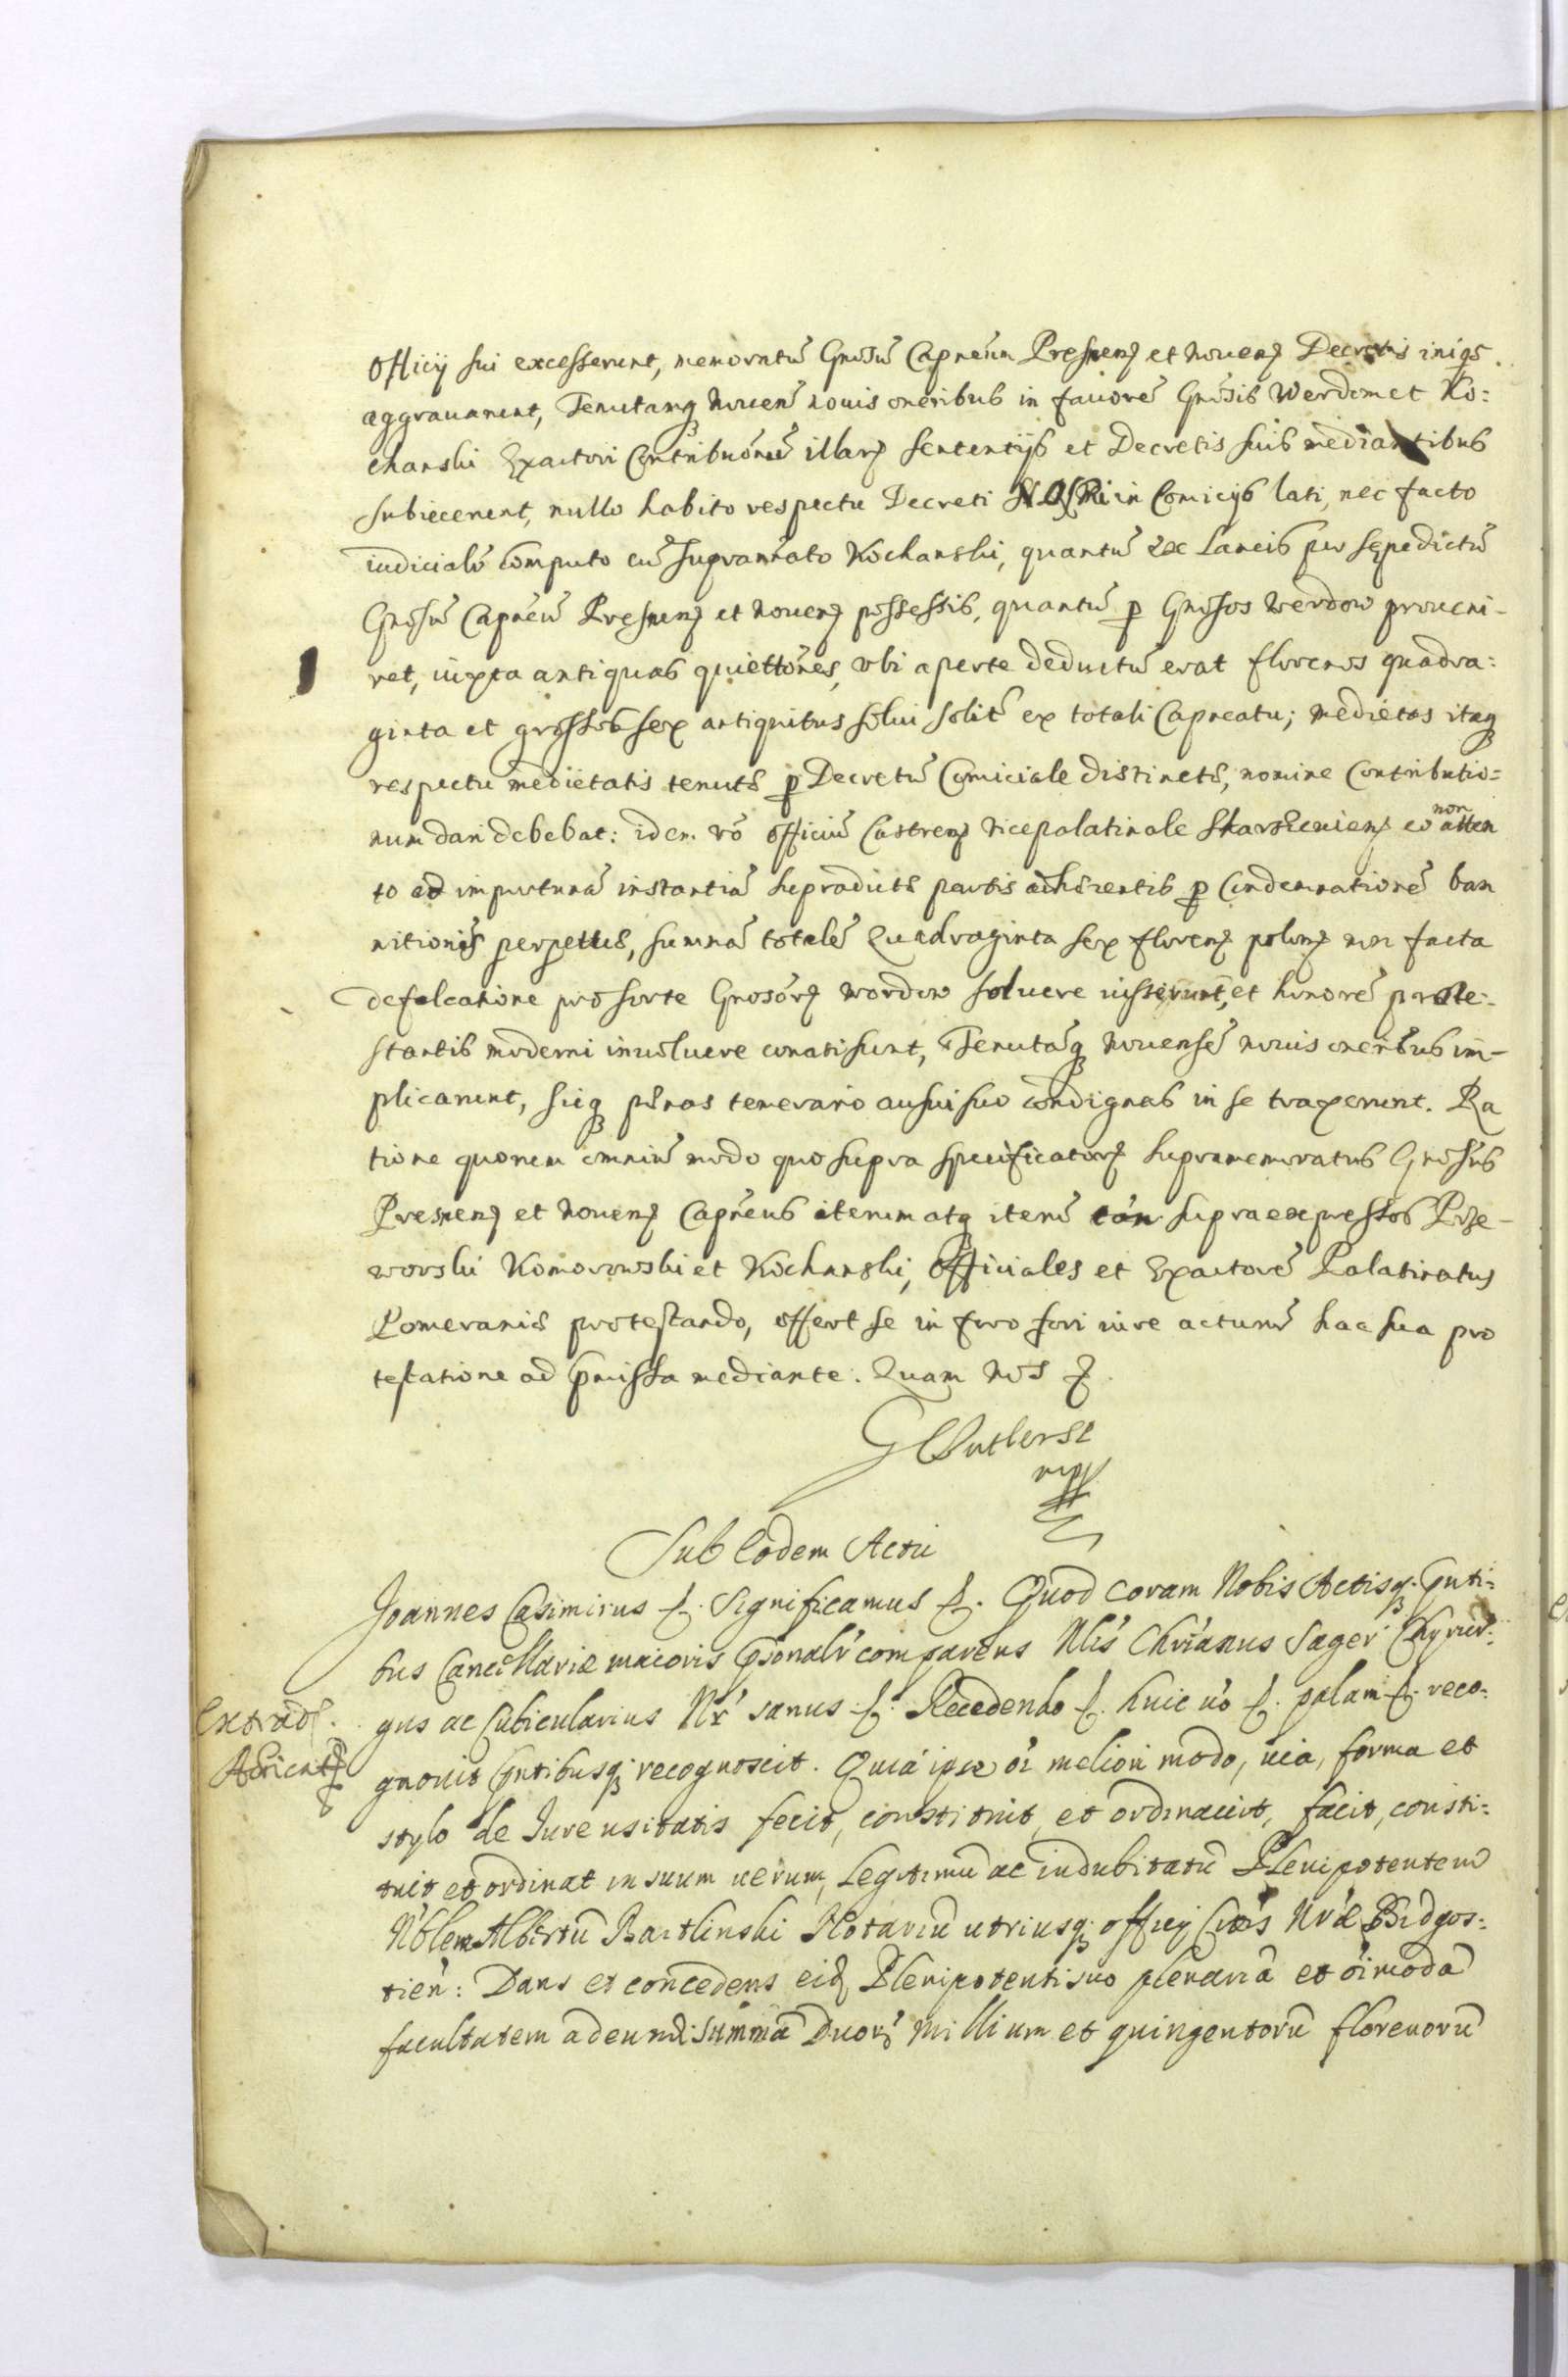 officij sui excesserunt, memoratũ Gnosũ Capneũm Presnenȝ et Nouenȝ Decretis iniqs
aggrauarunt, Tenutamqȝ Nouenś nouis oneribus in fauorẽ Gnosis Werdom et Ko:
chanski Exactori Contribuónũ illarȝ sententijs et Decretis suis mediantibus
subiecerunt, nullo habito respectu Decreti in Comicijs lati, nec facto
iudiciali computo cũ supranńato Kochanski, quantũ ex Laneis per sępedictũ
Gnosũ Capneũ Presnenȝ et Nouenȝ possessis, quantũ p Gnosos Werdow proueni-
ret, iuxta antiquas quiettónes, vbi aperte deductũ erat florenos quadra:
ginta et grossos sex antiquitus solui solitũ ex totali Capneatu; medietas itaqȝ
respectu medietatis tenutę p Decretũ Comiciale distinctę, nomine Contributio=
num dari debebat: idem vó officiũ Castrenȝ Vicepalatinale Skarszeuienȝ eo non atten
to ad importunã instantiã supradictę partis adhęrentis p Condemnationẽ ban
nitionis perpetuę, summã totalẽ Quadraginta sex florenȝ polonȝ non facta
defalcatione pro sorte Gnosórȝ Werdow soluere iusserunt, et honorẽ prote-
stantis moderni inuoluere conati sunt, Tenutãqȝ Nouensẽ nouis oneribus im-
plicarunt, sicqȝ pęnas temerario ausui suo condignas in se traxerunt. Ra
tione quorum omniũ modo quo supra specificatorȝ supramemoratus Gnosus
Presnenȝ et Nouenȝ Capneus iterum atqȝ iterũ cón supra expressos Prze-
worski Komorowski et Kochanski, Officiales et Exactorẽ Palatinatus
Pomeranię protestando, offert se in foro fori iure acturũ hac sua pro
testatione ad pmissa mediante. Quam Nos
GButlerSC
mpp
Sub Eodem Actu
Joannes Casimirus &. Significamus &. Quod coram Nobis Actisqȝ pnti:
bus Cancellariæ maioris psonalr comparens Nlis Chrianus Sager Chyrur:
Extrad.
gus ac Cubicularius Nr sanus &. Recedendo &. huic uó &. palam &. reco:
gnouit pntibusqȝ recognoscit. Quia ipse oi meliori modo, uia, forma et
stylo de Iure usitatis fecit, constituit, et ordinauit, facit, consti:
tuit et ordinat in suum uerum, Legitimũ ac indubitatũ Plenipotentem
Nóblem Albertũ Bartlinski Notariũ utriusqȝ officij Ciuis Nræ Bidgos:
tień: Dans et concedens eidȝ Plenipotenti suo plenariã et oimodã
facultatem adeundi summã Duorȝ Millium et quingentorũ florenorũ